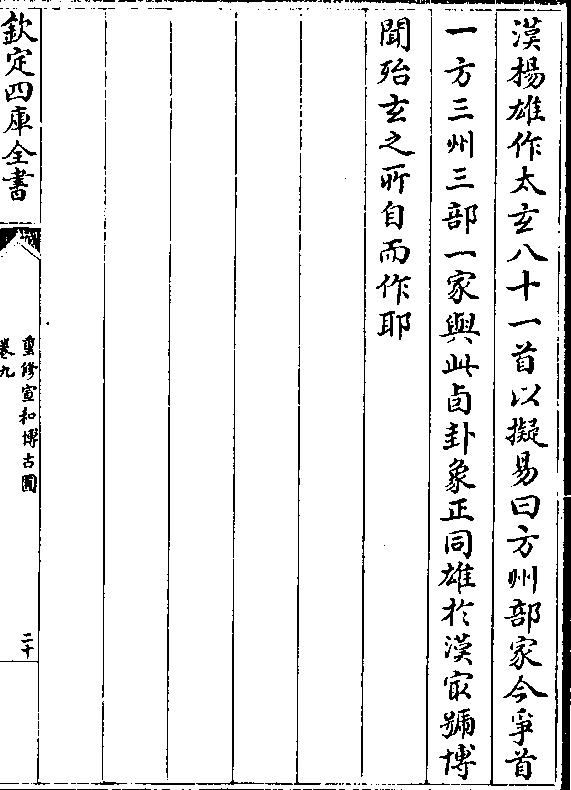 漢揚雄作太玄八十一首以擬易曰方州部家今爭首
一方三州三部一家與此卣卦象正同雄於漢㝡號博
聞殆玄之所自而作耶
欽定四庫全書
重修宣和博古圖
卷九
二十